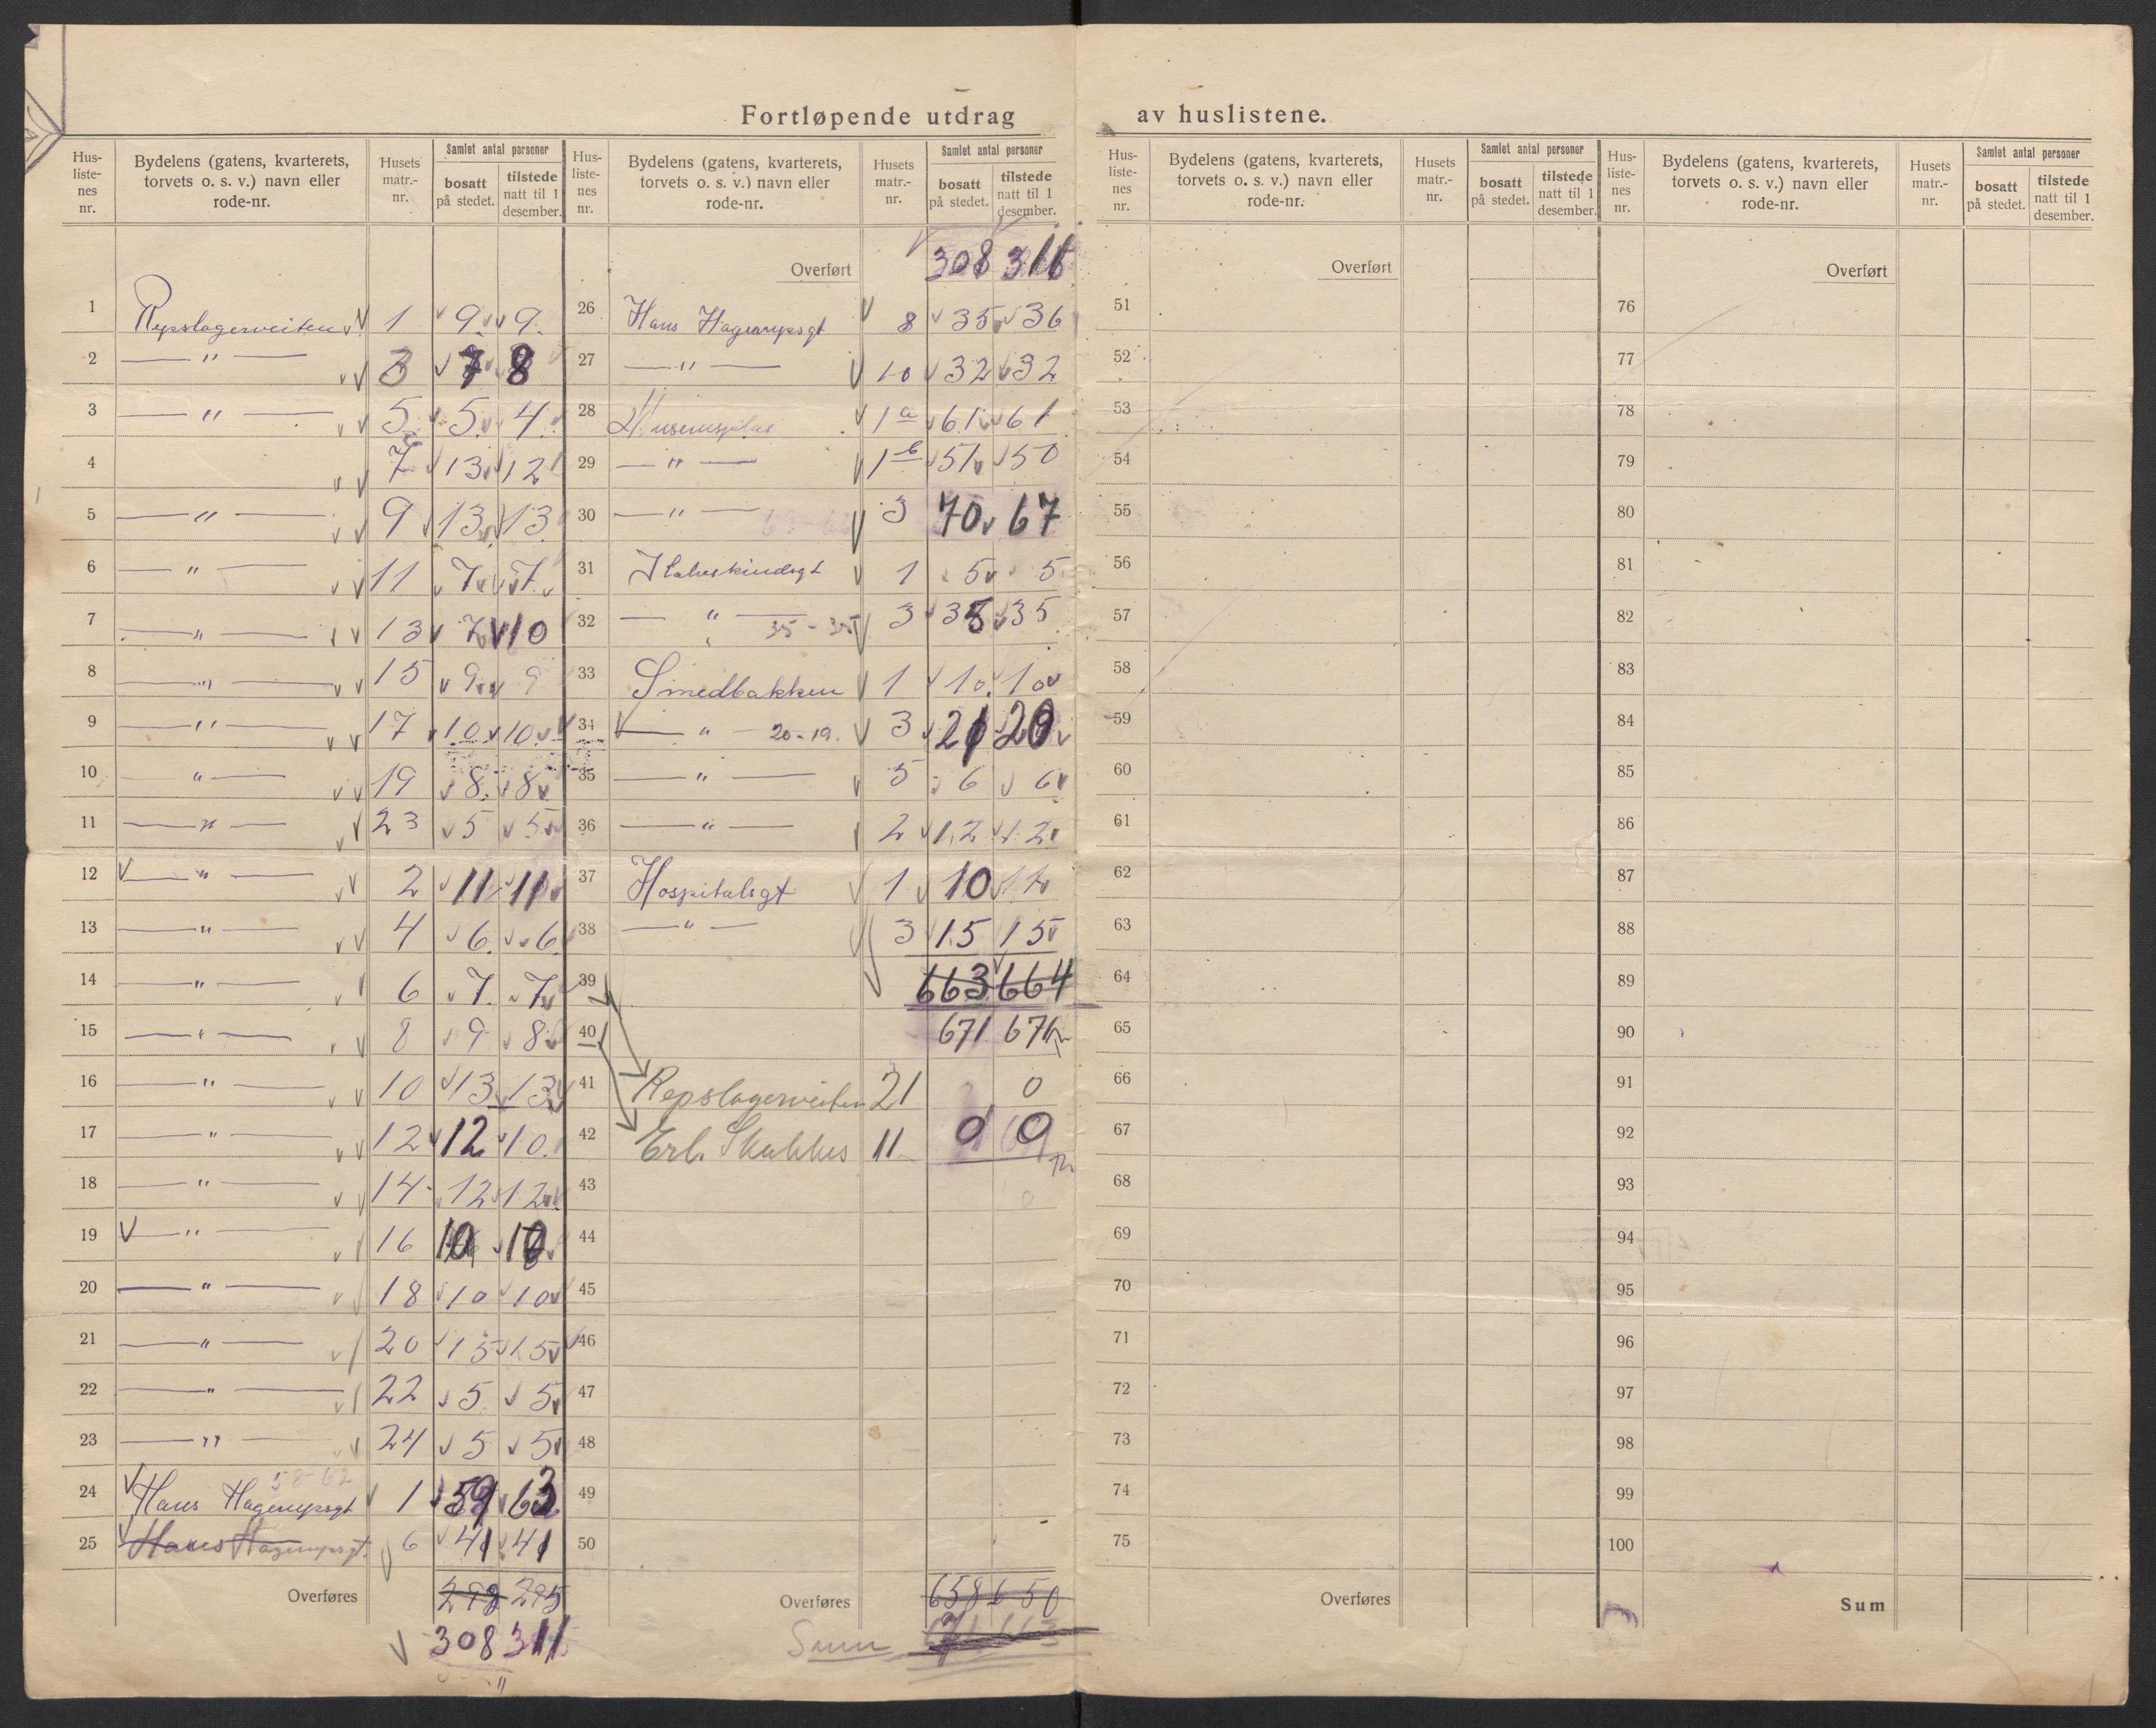 Fortløpende utdrag av huslistene.
Hus-liste-nes nr. Bydelens (gatens, kvarterets, torvets o. s. v.) navn eller rode-nr. Husets matr.-nr. Samlet antal personer bosatt på stedet. tilstede natt til 1 desember.
1 Repslagerveiten 1 9 9
2 — " — 3 7 8
3 — " — 5 5 4
4 7 13 12
5 — " — 9 13 13
6 — " — 11 7 7
7 — " — 13 7 10
8 — " — 15 9 9
9 — " — 17 10 10
10 — " — 19 8 8
11 — " — 23 5 5
12 — " — 2 11 11
13 — " — 4 6 6
14 — " — 6 7 7
15 — " — 8 9 8
16 — " — 10 13 13
17 — " — 12 12 10
18 — " — 14 12 12
19 — " — 16 10 10
20 — " — 18 10 10
21 — " — 20 15 15
22 — " — 22 5 5
23 — " — 24 5 5
58-62
24 Hans Hagerupsgt 1 59 63
25 Hans Hagerupsgt. 6 41 41
Overføres 298 295
308 311
Hus-liste-nes nr. Bydelens (gatens, kvarterets, torvets o. s. v.) navn eller rode-nr. Husets matr.-nr. Samlet antal personer bosatt på stedet. tilstede natt til 1 desember.
Overført 308 311
26 Hans Hagerupsgt 8 35 36
27 — " — 10 32 32
28 Museumsplas 1a 61 61
29 — " — 1b 51 50
30 — " — 3 70 67
31 Ilabekkindsgt 1 5 5
32 — " — 35-35 3 35 35
33 Smedbakken 1 10 10
34 — " — 20-19. 3 21 20
35 — " — 5 6 6
36 — " — 2 12 12
37 Hospitalsgt 1 10 12
38 — " — 3 15 15
39 663 664
40 671 671
41 Repslagerveiten 21 0
42 Erl. Skakkes 11 0 0
43
44
45
46
47
48
49
50
Overføres 658 650
Sum 663
Hus-liste-nes nr. Bydelens (gatens, kvarterets, torvets o. s. v.) navn eller rode-nr. Husets matr.-nr. Samlet antal personer bosatt på stedet. tilstede natt til 1 desember.
Overført
51
52
53
54
55
56
57
58
59
60
61
62
63
64
65
66
67
68
69
70
71
72
73
74
75
Overføres
Hus-liste-nes nr. Bydelens (gatens, kvarterets, torvets o. s. v.) navn eller rode-nr. Husets matr.-nr. Samlet antal personer bosatt på stedet. tilstede natt til 1 desember.
Overført
76
77
78
79
80
81
82
83
84
85
86
87
88
89
90
91
92
93
94
95
96
97
98
99
100
Sum